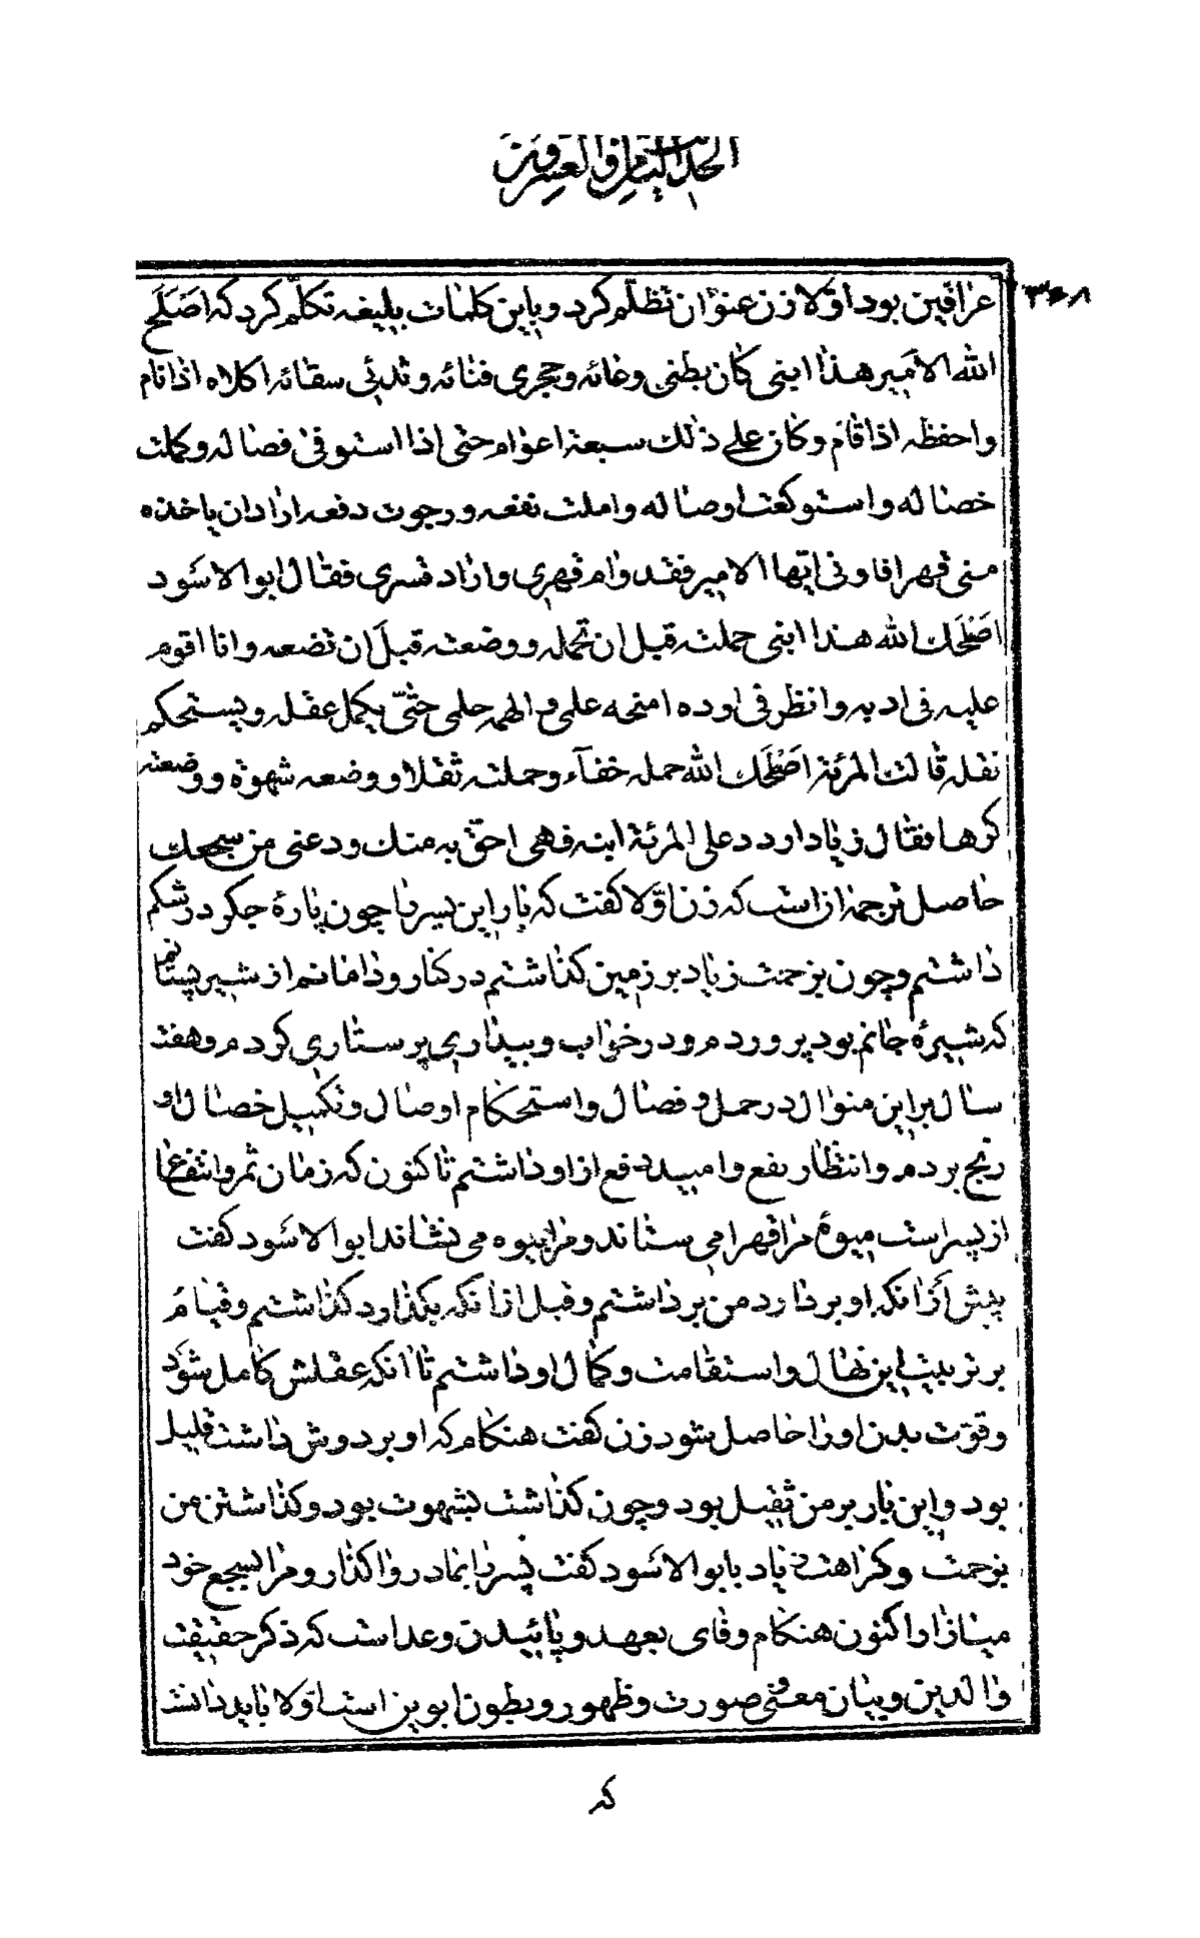 الحدیث الثامن والعشرون
۳۶۸
عراقین بود اوّلا زن عنوان تظلّم کرد و باین کلمات بلیغه تکلّم کرد که اصلح
الله الامیر هذا ابنی کان بطنی وعائه وحجری فنائه وثدیی سقائه اکلاه اذا نام
واحفظه اذا قام وکان علی ذلک سبعة اعوام حتی اذا استوفی فصاله وکملت
خصاله واستوکعت اوصاله واملت نفعه ورجوت دفعه اراد ان یاخذه
منی قهرا فاونی ایها الامیر فقد رام قهری واراد قسری فقال ابو الاسود
اصلحک الله هذا ابنی حملته قبل ان تحمله ووضعته قبل ان تضعه وانا اقوم
علیه فی ادبه وانظر فی اوده امنحه علمی والهمه حلمی حتّی یکمل عقله ویستحکم
نقله قالت المرئة اصلحک الله حمله خفآء وحملته ثقلا ووضعه شهوة ووضعته
کرها فقال زیاد اردد علی المرئة ابنه فهی احقّ به منک ودعنی من سجعک
حاصل ترجمه ان است که زن اوّلا کفت که بار این پسر را چون پارۀ جکر در شکم
داشتم و چون بزحمت زیاد بر زمین کذاشتم در کنار و دامانم از شیر پستانم
که شیرۀ جانم بود پروردم و در خواب و بیداری پرستاری کردم و هفت
سال براین منوال در حمل و فصال و استحکام اوصال و تکمیل خصال او
رنج بردم و انتظار نفع و امید دفع از او داشتم تا کنون که زمان ثمر و انتفاع ما
از پسر است میوۀ مرا قهرا می ستاند و مرا بیوه می نشاند ابو الاسود کفت
پیش از انکه او بردارد من برداشتم و قبل از انکه بکذارد کذاشتم و قیام
بر تربیت این نهال و استقامت و کمال او داشتم تا انکه عقلش کامل شود
و قوّت بدن او را حاصل شود زن کفت هنکام که او بر دوش داشت قلیل
بود و این بار بر من ثقیل بود و چون کذاشت بشهوت بود و کذاشتن من
بزحمت و کراهت زیاد بابو الاسود کفت پسر را بمادر واکذار و مرا بسجع خود
میازار اکنون هنکام وفای بعهد و پائیدن وعد است که ذکر حقیقت
والدین و بیان معنی صورت و ظهور و بطون ابوین است اوّلا باید دانست
که